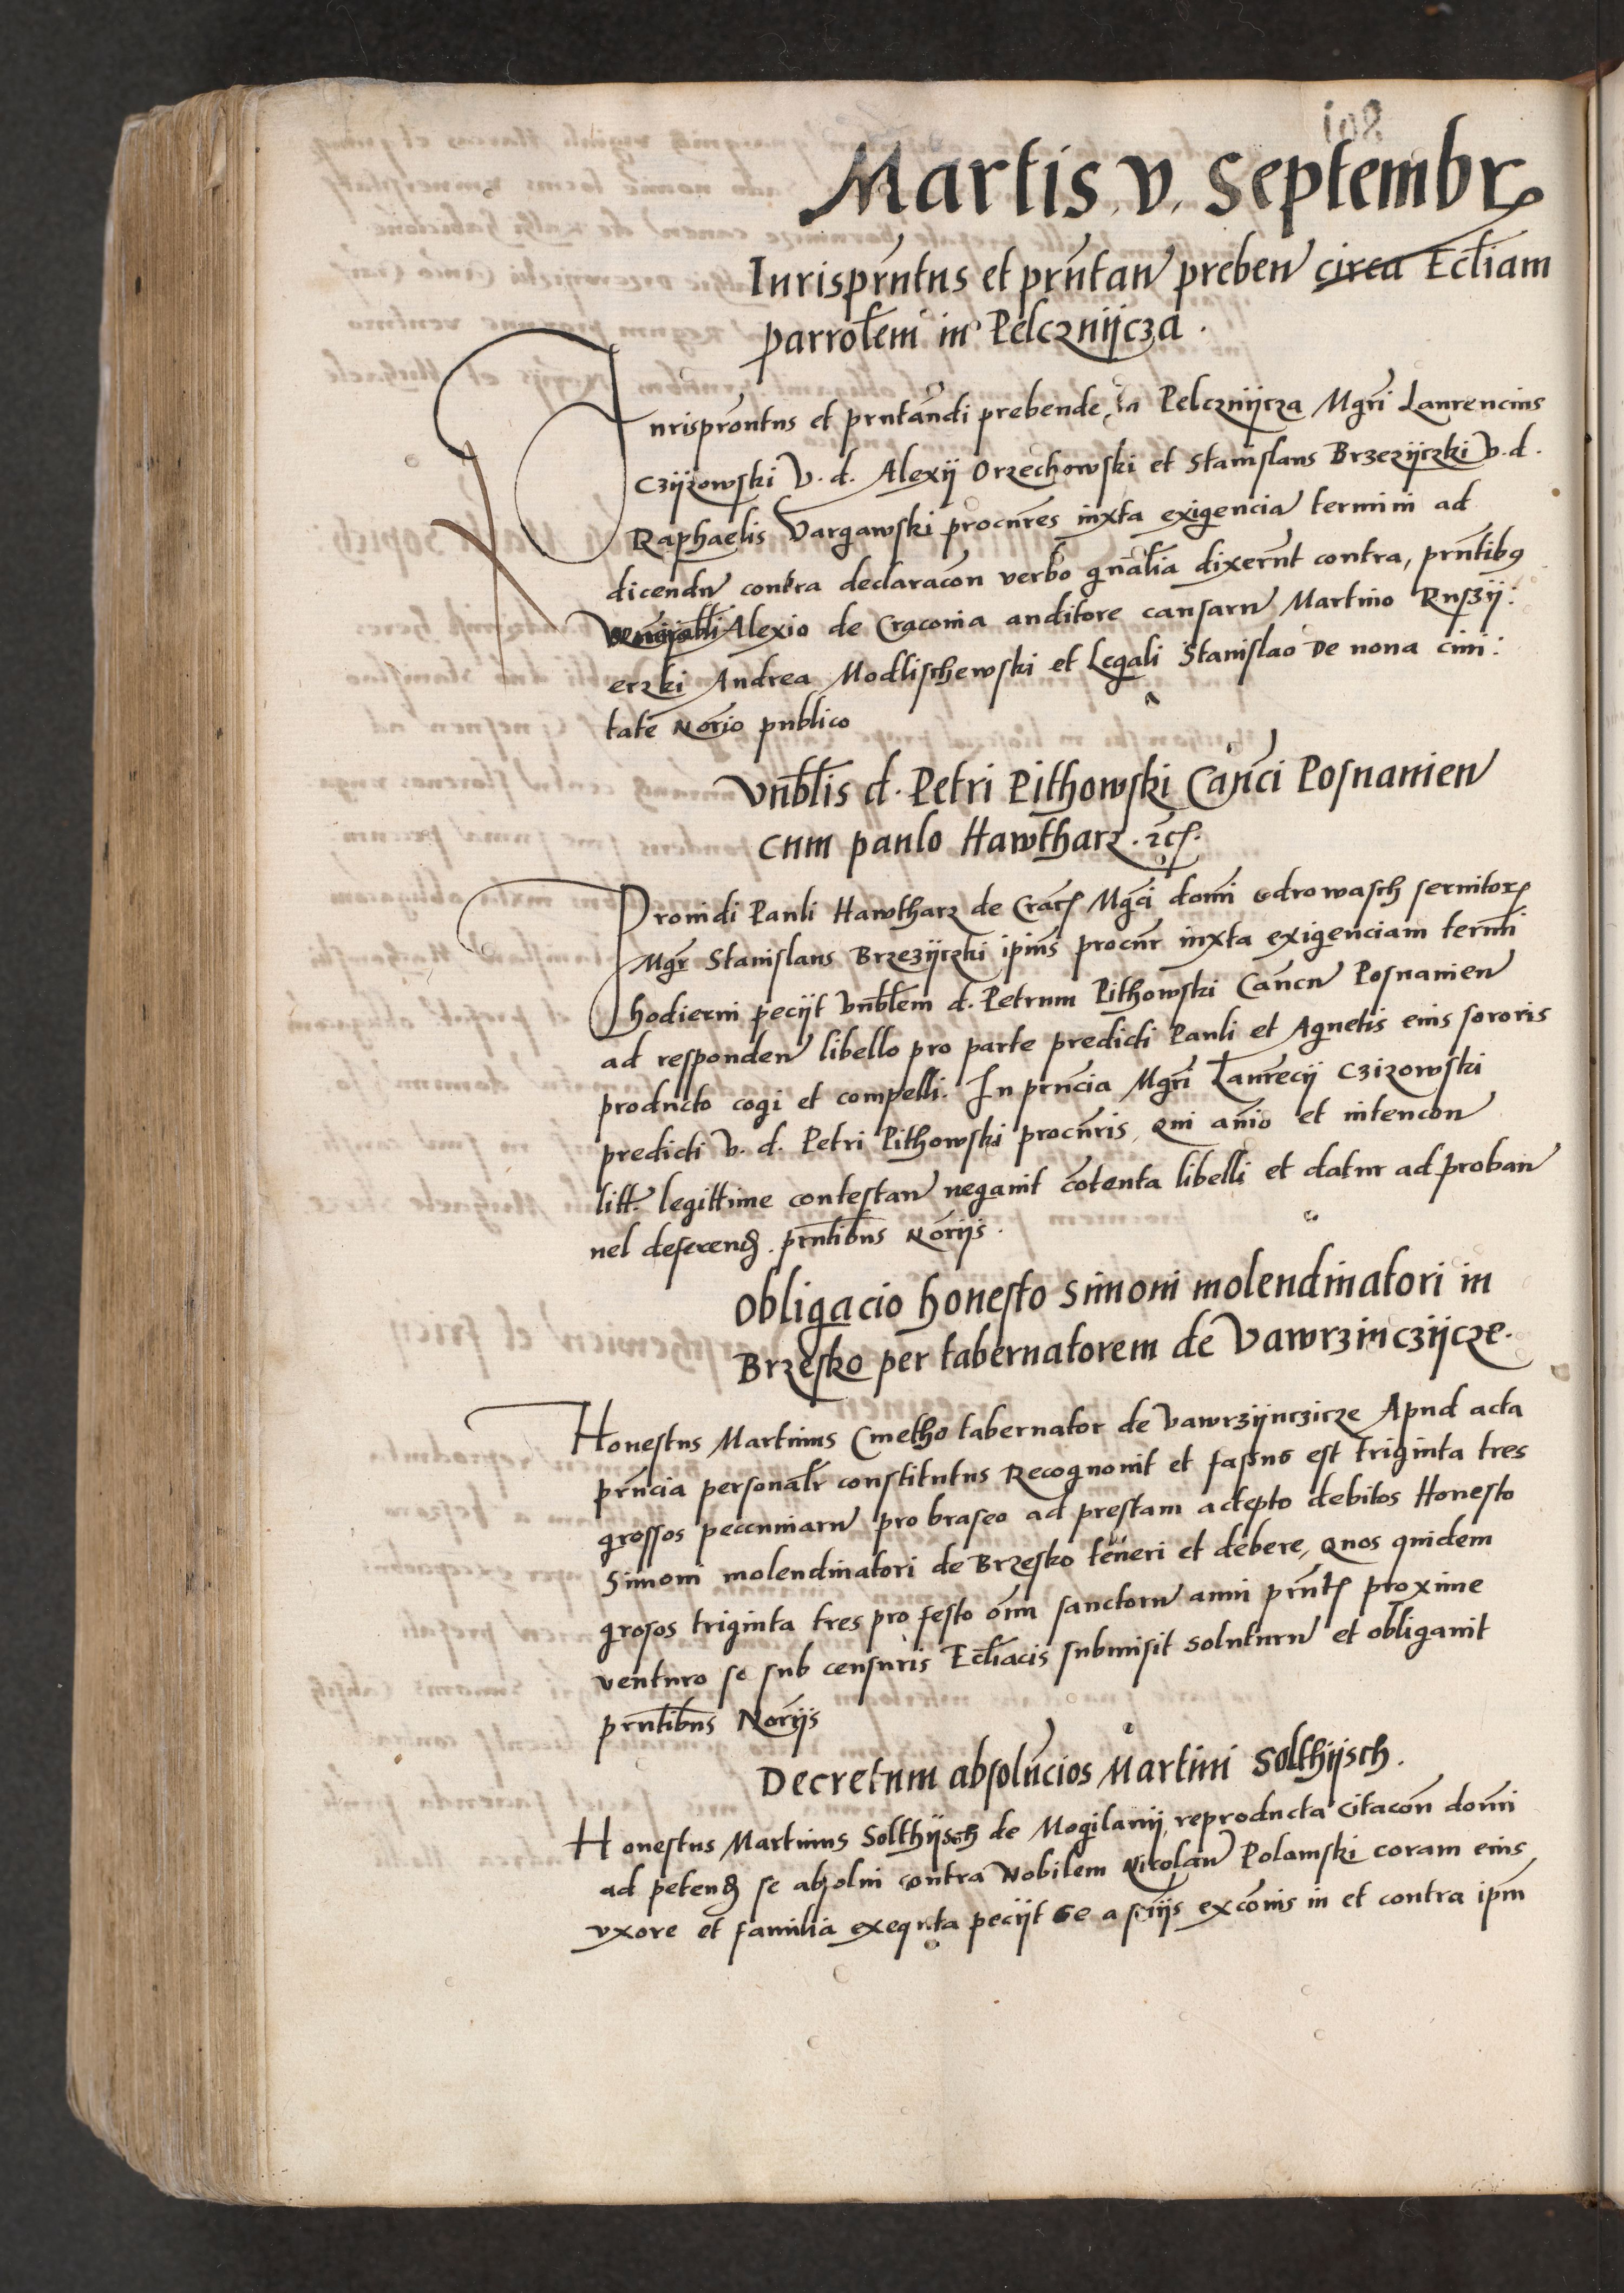 108
Martis .v. Septembr
Iurisprntus et prntan preben circa Eccliam
parrolem in Pelcznijcza .
Iurisprontus et prntandi prebende, in Pelcznijcza Mgri Laurencius
Czijzowski V. d. Alexij Orzechowski et Stanislaus Brzezijczki v. d.
Raphaelis Vargawski procures iuxta exigencia termini ad
dicendu contra declaracon verbo gnalia dixerunt contra, prntibus
Alexio de Cracouia auditore causaru Martino Ruszij:
eczki Andrea Modlischewski et Legali Stanislao De noua ciui:
tate Norio publico
Vnblis d. Petri Pithowski Canci Posnanien
cum paulo Hawtharz . etc.
Prouidi Pauli Hawtharz de Crac Mgci domi Odrowasch seruitor
Mgr Stanislaus Brzezijczki ipius procur iuxta exigenciam termi
hodierni pecijt vnblem d. Petrum Pithowski Cancu Posnanien
ad responden libello pro parte predicti Pauli et Agnetis eius sororis
producto cogi et compelli. In prncia Mgri Laurecij Czizowski
predicti v. d. Petri Pithowski procuris, qui anio et intencon
litt. legittime contestan negauit cotenta libelli et datur ad proban
uel deferend. prntibus Norijs .
Obligacio honesto Simoni molendinatori in
Brzesko per tabernatorem de Vawrzinczijcze .
Honestus Martinus Cmetho tabernator de Vawrzijnczicze Apud acta
prncia personalr constitutus Recognouit et fassus est triginta tres
grossos peccuniaru pro braseo ad prestam adepto debitos Honesto
Simoni molendinatori de Brzesko teneri et debere, quos quidem
grosos triginta tres pro festo oim sanctoru anni prnt proxime
venturo se sub censuris Eccliacis submisit soluturu et obligauit
prntibus Norijs
Decretum absoluncios Martini Solthijsch .
Honestus Martinus Solthijsch de Mogilanij, reproducta citacon domi
ad petend se absolui contra Nobilem Nicolau Polomski coram eius
vxore et familia exequta pecijt se a snijs excomis in et contra ipm